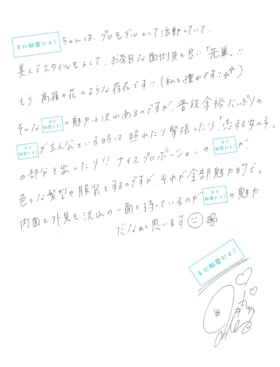 まだ秘密だよ！ ちゃんは、プロモデルとして活動していて、
美人でスタイルもよくて、お茶目な面倒見も良い「先輩」!!
もう 高嶺の花のような存在です!! (私も憧れです!!
そんな まだ秘密だよ！ の魅力は沢山あるのですが、普段余裕たっぷりの
まだ秘密だよ！ が主人公といる時は 照れたり緊張したり、「恋する女の子」
の部分を出したり!! ナイスプロポーションの まだ秘密だよ！ が
色々な髪型や服装をするのですが、それが全部魅力的で。
内面も外見も沢山の一面を持っているのが まだ秘密だよ！ の魅力
だなぁと思います
まだ秘密だよ！